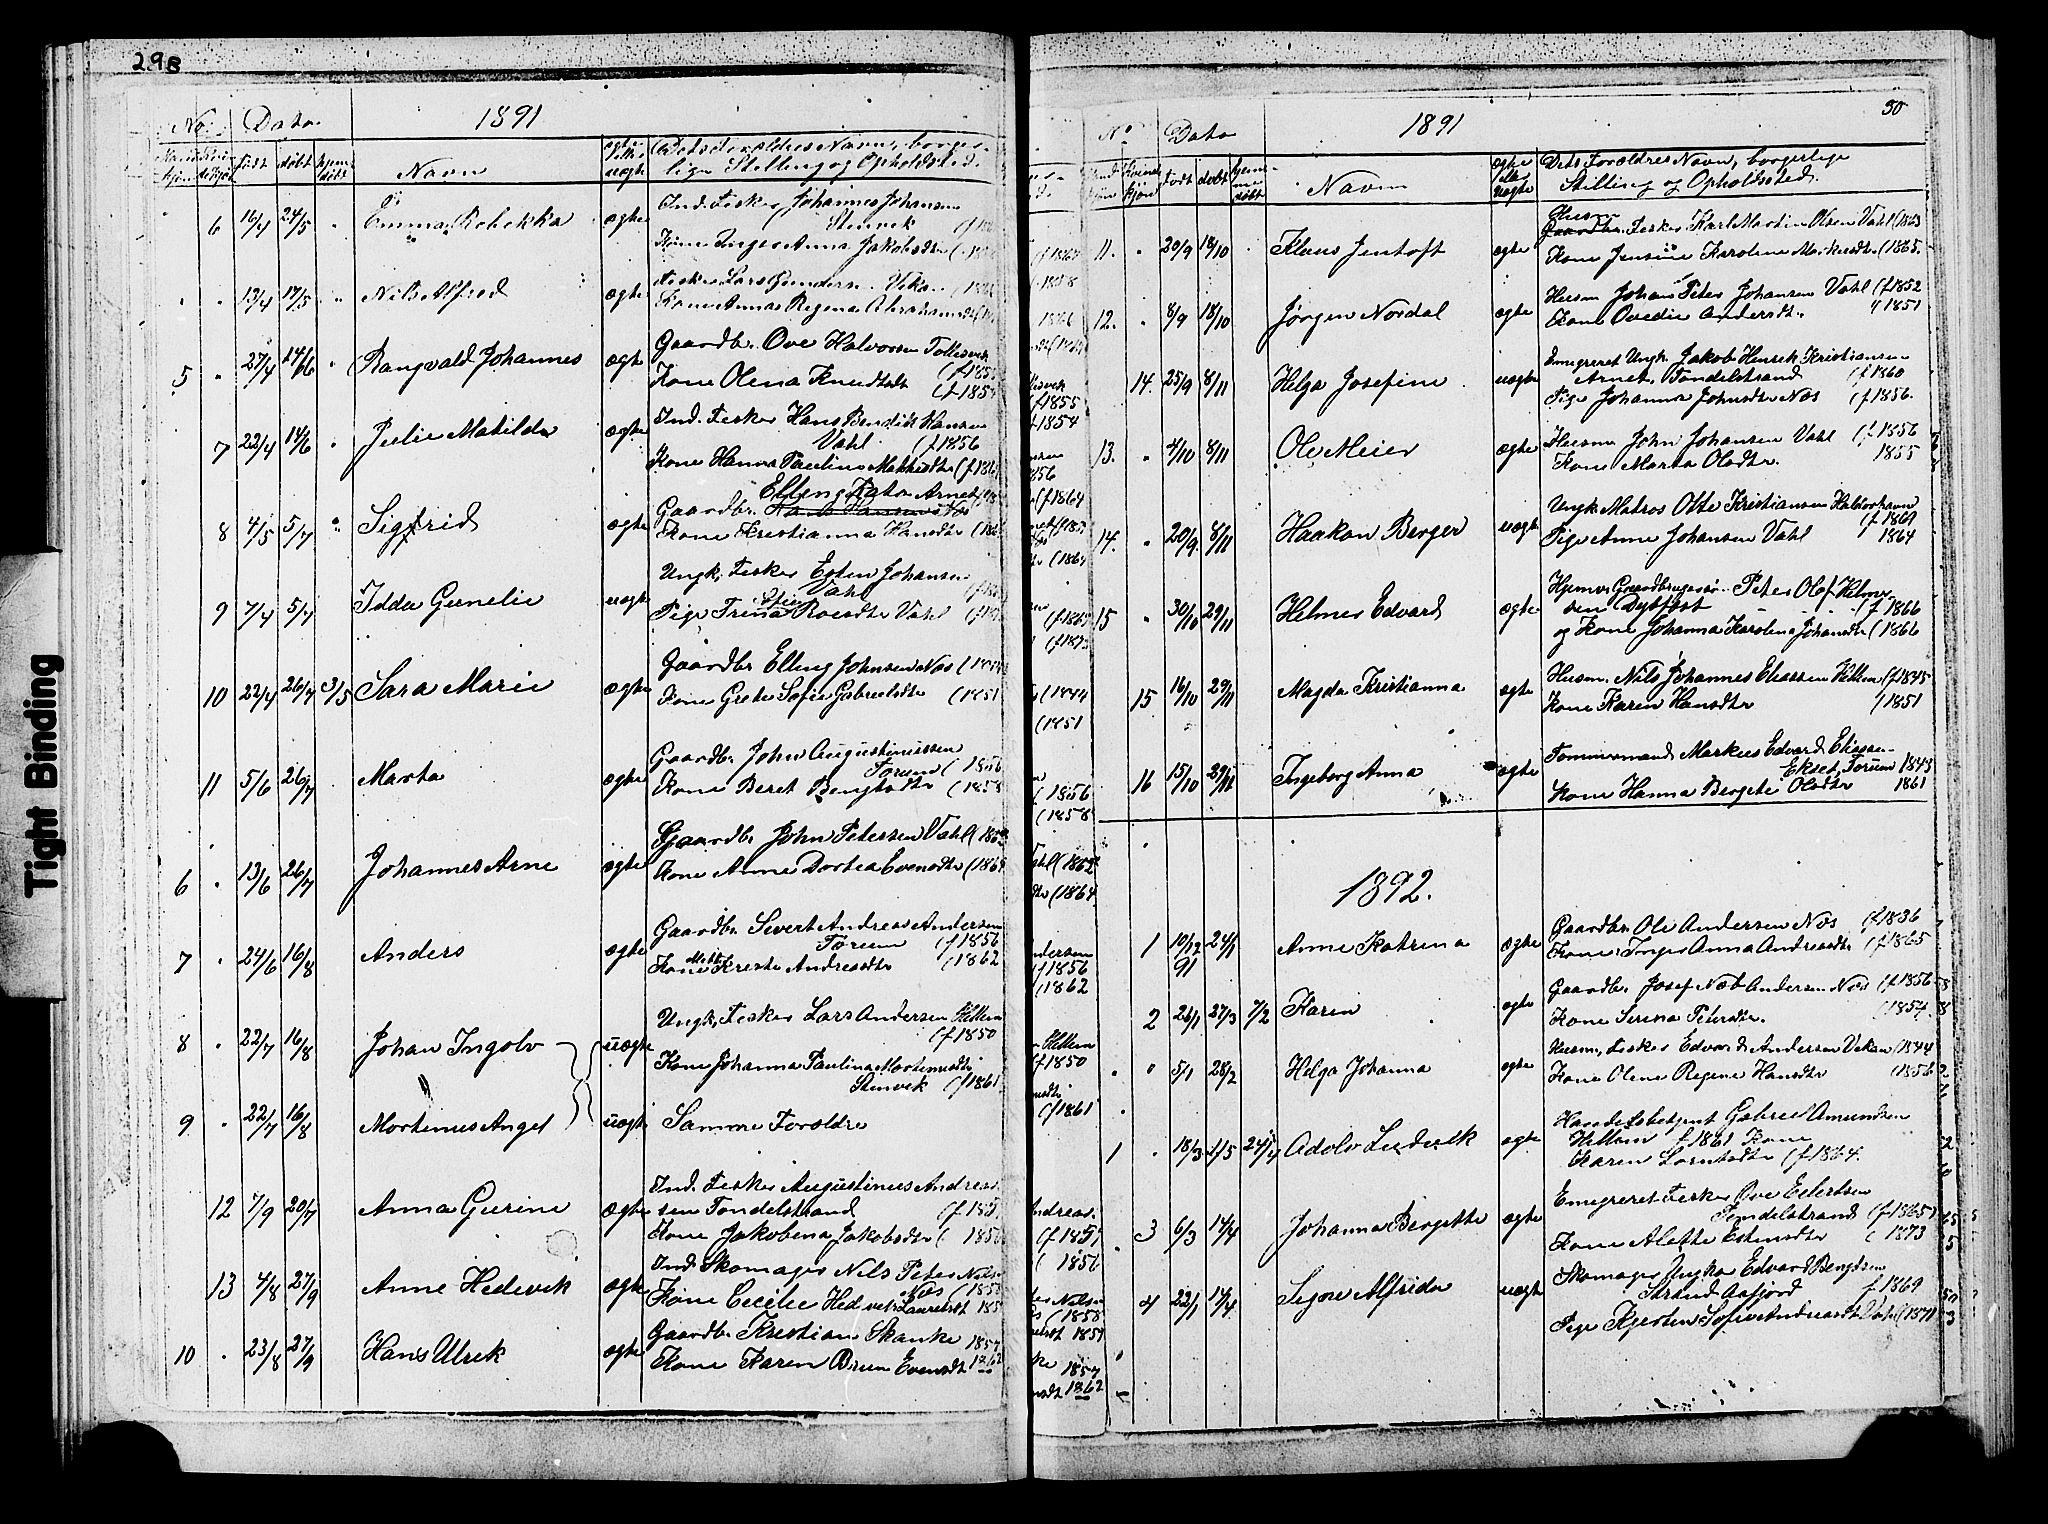 29B
No. Dato. 1891
født døbt hjemdøbt Navn ægte eller uægte Dets Forældres Navn, borger-
lige Stilling og Opholdssted.
6 16/4 24/5 " Emma Rebekka ægte Ind. Fisker Johannes Johansen
Stenvik
Kone Inger Anna Jakobsdtr
" " 13/4 17/5 " Nils Alfred ægte Fisker Lars Gundersen Vikan
Kone Anna Regina Abrahamsdtr
5 " 27/4 14/6 " Rangvald Johannes ægte Gaardbr. Ove Halvorsen
Kone Olena Knudtdtr (f. 1855
(f. 1854
7 22/4 14/6 " Julie Matilda ægte Ind. Fisker Hans Bendik Hansen
Vahl (f 1856
Kone Hanna Paulina (f 1864
8 4/5 5/7 " Sigfrid ægte Elling Arnet
Gaardbr.
Kone Kristianna Hansdtr
9 7/4 5/7 Idda Gunelie uægte Ungk. Fisker Johansen
Vahl
Pige Trina Vahl
10 22/4 26/7 3/5 Sara Marie ægte Gaardbr Elling Johnsen Næs (1844
Kone Grete Sofie Gabrielsdtr (1851
11 5/6 26/7 Marta ægte Gaardbr. John Augustinussen
Forum (1856
Kone Beret Bengtsdtr (1858
6 " 13/6 26/7 Johannes Arne ægte Gaardbr John Petersen Vahl (1852
Kone Anne Dortea Evensdtr (1864
7 " 24/6 16/8 Anders ægte Gaardbr. Sivert Andreas Andersen
Forum (f 1856
Kone Kirste Andreasdtr (1862
8 " 22/7 16/8 Johan Ingolv uægte Ungk. Fisker Lars Andersen Hellem
(f 1850
Kone Johanna Paulina Mortinusdtr
Stenvik (f 1861
9 " 22/7 16/8 Mortinus Angel uægte Samme Forældre
12 7/9 20/7 Anna Gurine ægte Ind. Fisker Augustinus Andreas-
sen Tondelstrand (f. 1851
Kone Jakobina Jakobsdtr (1856
13 4/8 27/9 Anne Hedevik ægte Ind Skomager Nils Peter Nilsen
Næs (1858
Kone Cecilie Hedvik Lauritsdt 1851
10 " 23/8 27/9 Hans Ulrik ægte Gaardbr. Kristian Skanke 1857
Kone Karen Bruun Evensdt 1862
50
No Dato 1891
født døbt hjemmedøbt Navn ægte eller uægte Dets Forældres Navn, borgerlige
Stilling og Opholdssted.
Husm
11. " 20/9 18/10 Klaus Jentoft ægte Gaardbr. Fisker Karl Martin Olsen Vahl (1863
Kone Jensine Karoline (1865.
12. " 8/9 18/10 Jørgen Nordal ægte Husm Johan Peter Johansen Vahl (f 1852
Kone Ovedie Andersdt. " 1851
14. 25/9 8/11 Helga Josefine uægte Emigreret Ungk. Jakob Henrik Kristiansen
Arnet, Tondelstrand (f 1860
Pige Johanna Johnsdtr Næs (f 1856.
13. " 4/10 8/11 Ole Meier ægte Husm John Johansen Vahl (f 1856
Kone Marta Olsdtr. 1855
14. " 20/9. 8/11 Haakon Berger uægte Ungk Matros Otto Kristiansen Halvorhavn
(f 1869
Pige Anne Johansen Vahl 1864
15 " 30/10 29/11 Helmer Edvard ægte Hjemv. Gaardbrugersøn Peter Olaf Helmer-
sen Dybfest (f 1866
og Kone Johanna Karolina Johansdtr (1866
15 16/10 29/11 Magda Kristianna ægte Husm. Nils Johannes Eliassen Hellem (f 1845
Kone Karen Hansdtr (1851
16 15/10 29/11 Ingeborg Anna ægte Tømmermand Markus Edvard Eliasen
Ekset, Forum 1843
Kone Hanna Bergite Olsdtr 1861
1892.
1 10/12 91 24/1 Anne Katrina ægte Gaardbr. Ole Andersen Næs (f 1836
Kone Inger Anna Andreasdtr (f 1865
2 26/1 27/3 7/2 Karen ægte Gaardbr Josef Andersen Næs (f 1856
Kone Serina Petersdtr. (1854
" " 5/1 28/2 Helga Johanna ægte Husm., Fisker Edvard Andersen Vikan (1844
Kone Olene Regine Hansdtr (1856
1 " 18/3 1/5 24/4 Adolv Ludevik ægte Handelsbetjent Gabriel Amundsen
Hellem f 1861 Kone
Karen Lorntsdtr (f 1864.
3 6/3 14/4 Johanna Bergitte ægte Emigreret Fisker Ove Edertsen
Tondelstrand (f 1865
Kone Alette Estensdtr ( 1873
4 22/1 14/4 Signe Alfrida uægte Skomager Ungkar Edvard Bengtsen
Strand Aafjord f 1869
Pige Kjersten Sofie Andreasdt Vahl (1871
Tight Binding